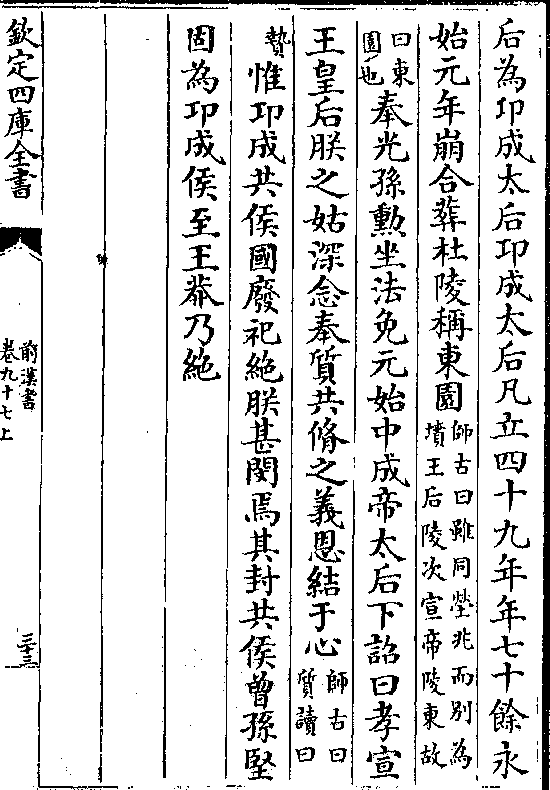 后為卭成太后卭成太后凡立四十九年年七十餘永
始元年崩合葬杜陵稱東園師古曰雖同塋兆而別為墳王后陵次宣帝陵東故
曰東園也奉光孫勲坐法免元始中成帝太后下詔曰孝宣
王皇后朕之姑深念奉質共脩之義恩結于心師古曰質讀曰
贄惟卭成共侯國廢祀絶朕甚閔焉其封共侯曾孫堅
固為卭成侯至王莽乃絶
欽定四庫全書
前漢書
卷九十七上
三十三